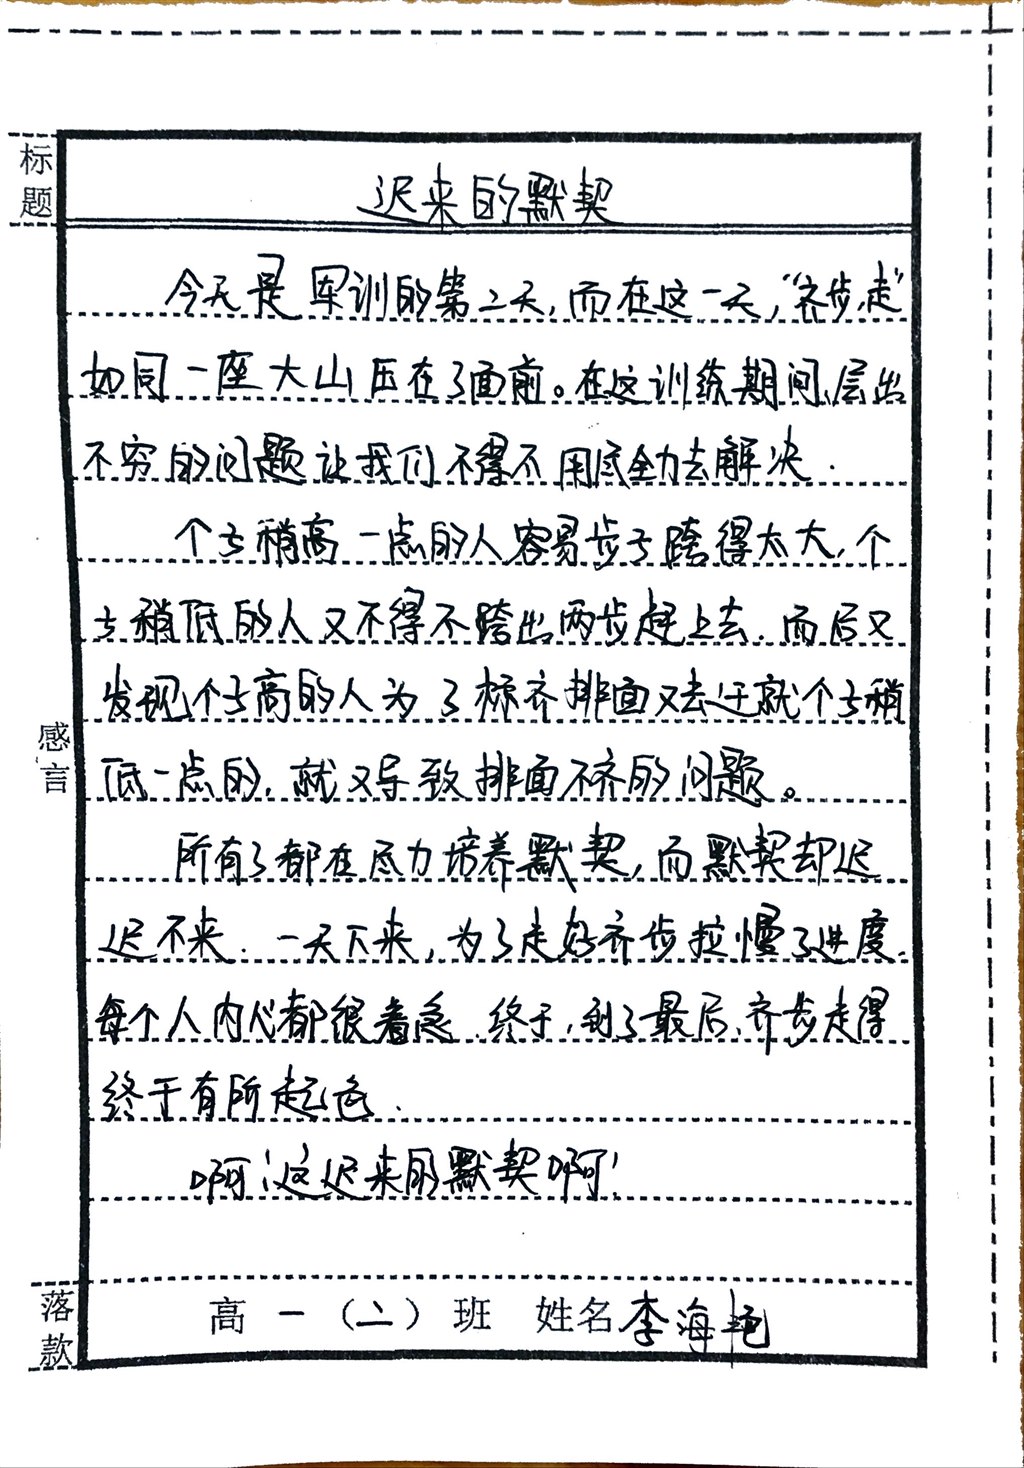 标题
迟来的默契
今天是军训的第二天,而在这一天,“齐步走”
如同一座大山压在了面前。在这训练期间,层出
不穷的问题让我们不得不用尽全力去解决.
个子稍高一点的人容易步子跨得太大,个
子稍低的人又不得不跨出两步赶上去.而后又
发现个子高的人为了标齐排面又去迁就个子稍
低一点的,就又导致排面不齐的问题。
感言
所有了都在尽力培养默契,而默契却迟
迟不来.一天下来,为了走好齐步拉慢了进度.
每个人内心都很着急.终于,到了最后,齐步走得
终于有所起色.
啊!这迟来的默契啊!
落款
高一(二)班 姓名李海艳